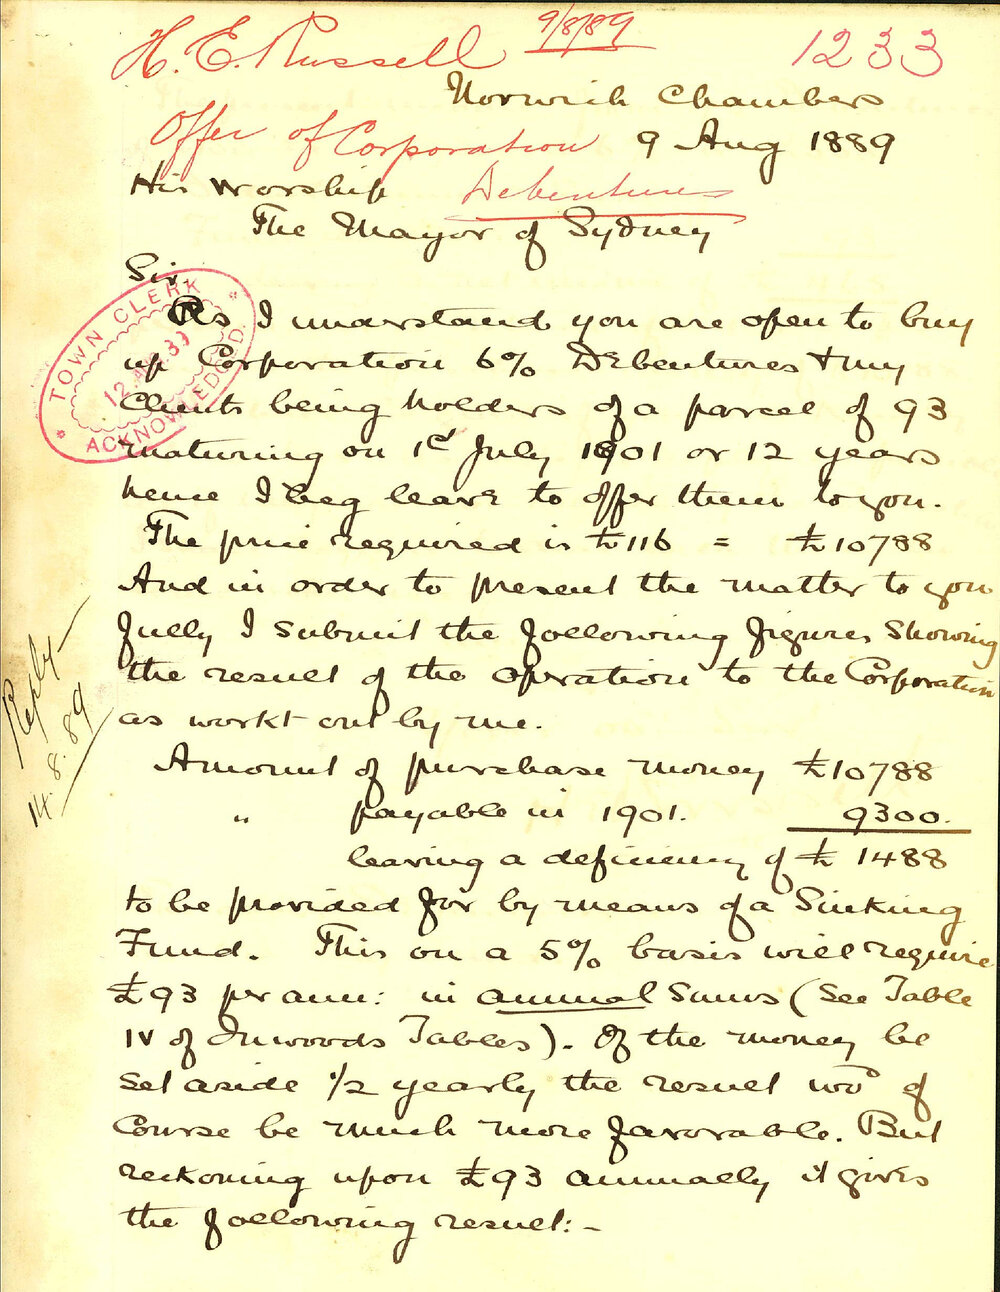 H. E. Russell 9/8/89 1233
Norwich Chambers
Offer of Corporation 9 Aug 1889
His Worship Debentures
The Mayor of Sydney
Sir,
TOWN CLERK
12 AUG. 89
ACKNOWLEDGED.
As I understand you are open to buy
up Corporation 6% Debentures & my
Clients being holders of a parcel of 93
maturing on 1st July 1901 or 12 years
hence I beg leave to offer them to you.
The price required is £116 = £10788
And in order to present the matter to you
fully I submit the following figures showing
the result of the operation to the Corporation
as workt out by me.
Reply
14.8.89
Amount of purchase money £10788
" payable in 1901. 9300.
leaving a deficiency of £1488
to be provided for by means of a Sinking
Fund. This on a 5% basis will require
£93 per ann: in annual sums (See Table
IV of Inwoods Tables). If the money be
set aside 1/2 yearly the result wod of
course be much more favorable. But
reckoning upon £93 annually it gives
the following result:-